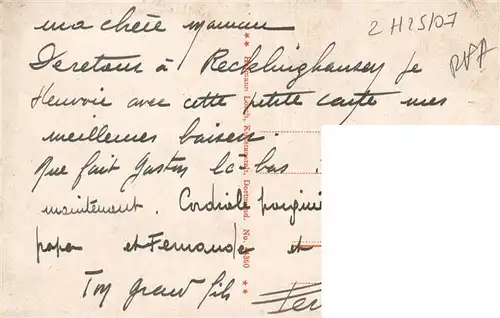 ma chère maman
De retour à Recklinghausen je
t'envoie avec cette petite carte mes
meilleurs baisers.
Que fait Gaston là-bas
maintement. Cordiale
papa et Fernande et
Ton grand fils
2 H25/07
** Hermann Lorch, Kunstanstalt, Dortmund. No. 360 **